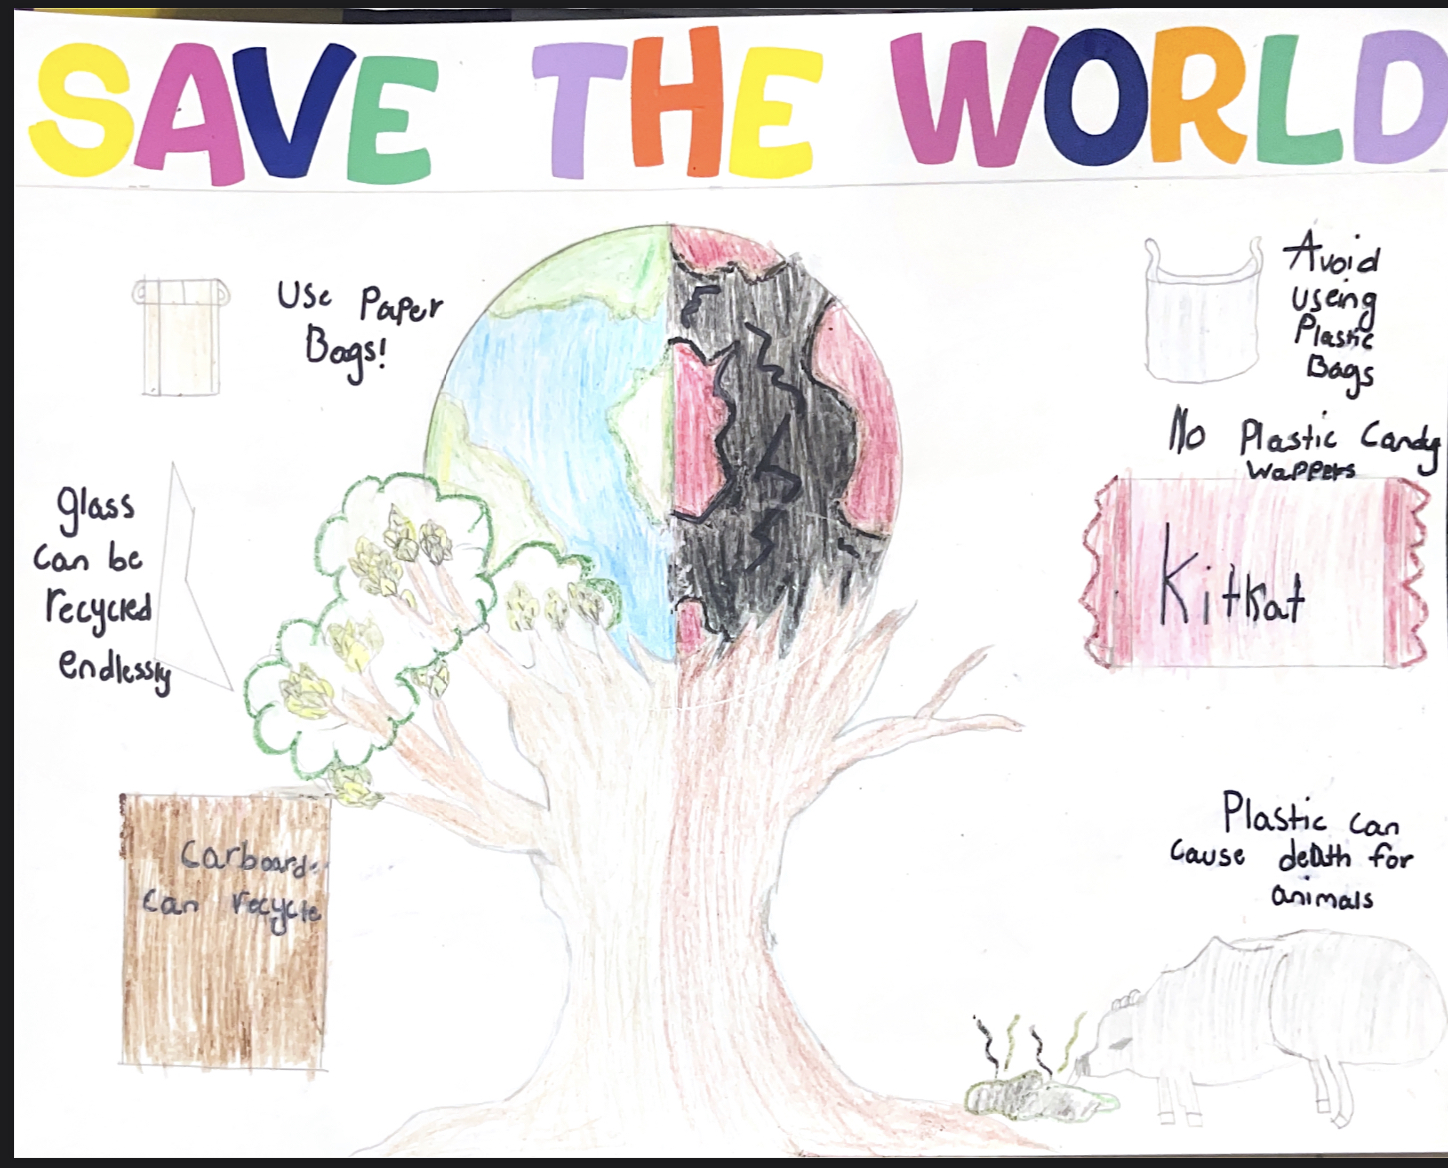 SAVE THE WORLD
Use Paper
Bags!
glass
can be
recycled
endlessly
Carboard
can recycle
Avoid
useing
Plastic
Bags
No Plastic Candy
wappers
Kitkat
Plastic can
cause death for
animals